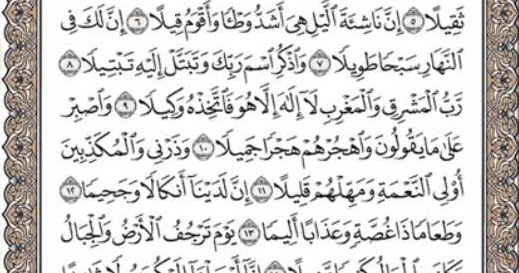 ثَقِيلًا ۝٥ إِنَّ نَاشِئَةَ ٱلَّيْلِ هِىَ أَشَدُّ وَطْـًٔا وَأَقْوَمُ قِيلًا ۝٦ إِنَّ لَكَ فِى
ٱلنَّهَارِ سَبْحًا طَوِيلًا ۝٧ وَٱذْكُرِ ٱسْمَ رَبِّكَ وَتَبَتَّلْ إِلَيْهِ تَبْتِيلًا ۝٨
رَّبُّ ٱلْمَشْرِقِ وَٱلْمَغْرِبِ لَآ إِلَٰهَ إِلَّا هُوَ فَٱتَّخِذْهُ وَكِيلًا ۝٩ وَٱصْبِرْ
عَلَىٰ مَا يَقُولُونَ وَٱهْجُرْهُمْ هَجْرًا جَمِيلًا ۝١٠ وَذَرْنِى وَٱلْمُكَذِّبِينَ
أُو۟لِى ٱلنَّعْمَةِ وَمَهِّلْهُمْ قَلِيلًا ۝١١ إِنَّ لَدَيْنَآ أَنكَالًا وَجَحِيمًا ۝١٢
وَطَعَامًا ذَا غُصَّةٍ وَعَذَابًا أَلِيمًا ۝١٣ يَوْمَ تَرْجُفُ ٱلْأَرْضُ وَٱلْجِبَالُ